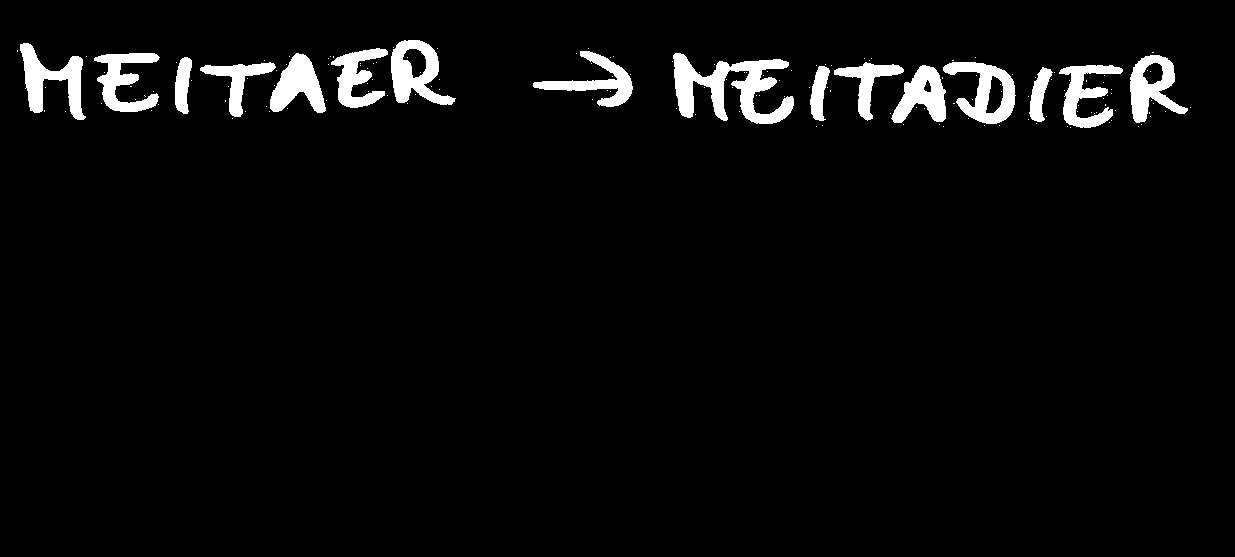 MEITAER → MEITADIER